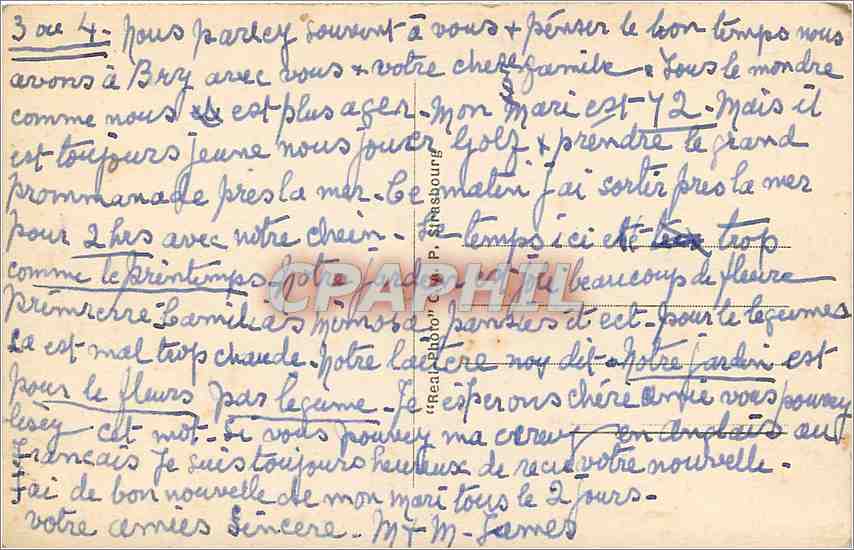 3 ou 4. Nous parley souvent à vous & penser le bon temps nous
avons à Bry avec vous & votre chere famile & Tous le mondre
comme nous est plus ager - Mon Mari est 72 - Mais il
est toujours jeune nous jouer Golf & prendre le grand
prommanade près la mer - Ce matin j'ai sortir pres la mer
pour 2 hrs avec notre chein - Le temps ici est trop
comme le printemps - Notre jardin beaucoup de fleure
primerre Camilias Mimosa pansies et ect - pour le legumes
sa est mal trop chaude - Notre dit - Notre jardin est
pour le fleurs pas legume - Je esperons chére amie vous pouvey
lesey cet mot - Si vous pouvey ma en anglais au
Francais Je suis toujours heureux de votre nouvelle -
J'ai de bon nouvelle de mon mari tous le 2 jours -
votre amies Sincere - M & M - James
"Real-Photo" C. A. P. Strasbourg
CPAPHIL